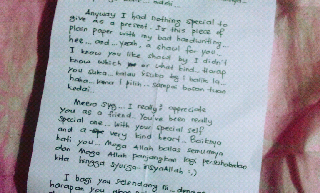 Anyway I had nothing special to
give as a present. Is this piece of
plain paper with my bad handwriting..
hee.. and.. yeah, a shawl for you..
I know you like shawl by I didn't
know which or what kind.. harap
you suka.. kalau x suka bg I balik la..
haha.. lama I pilih.. sampai bosan tuan
kedai..
Meera Syg... I really appreciate
you as a friend. You've been really
special one.. with your special self
and a very kind heart. Baiknya
hati kamu.. Moga Allah balas semuanya
dan Moga Allah panjangkan lagi persahabatan
kita hingga Syurga.. insyaAllah :)
I bagi you selendang ni.. dengan
harapan you akan